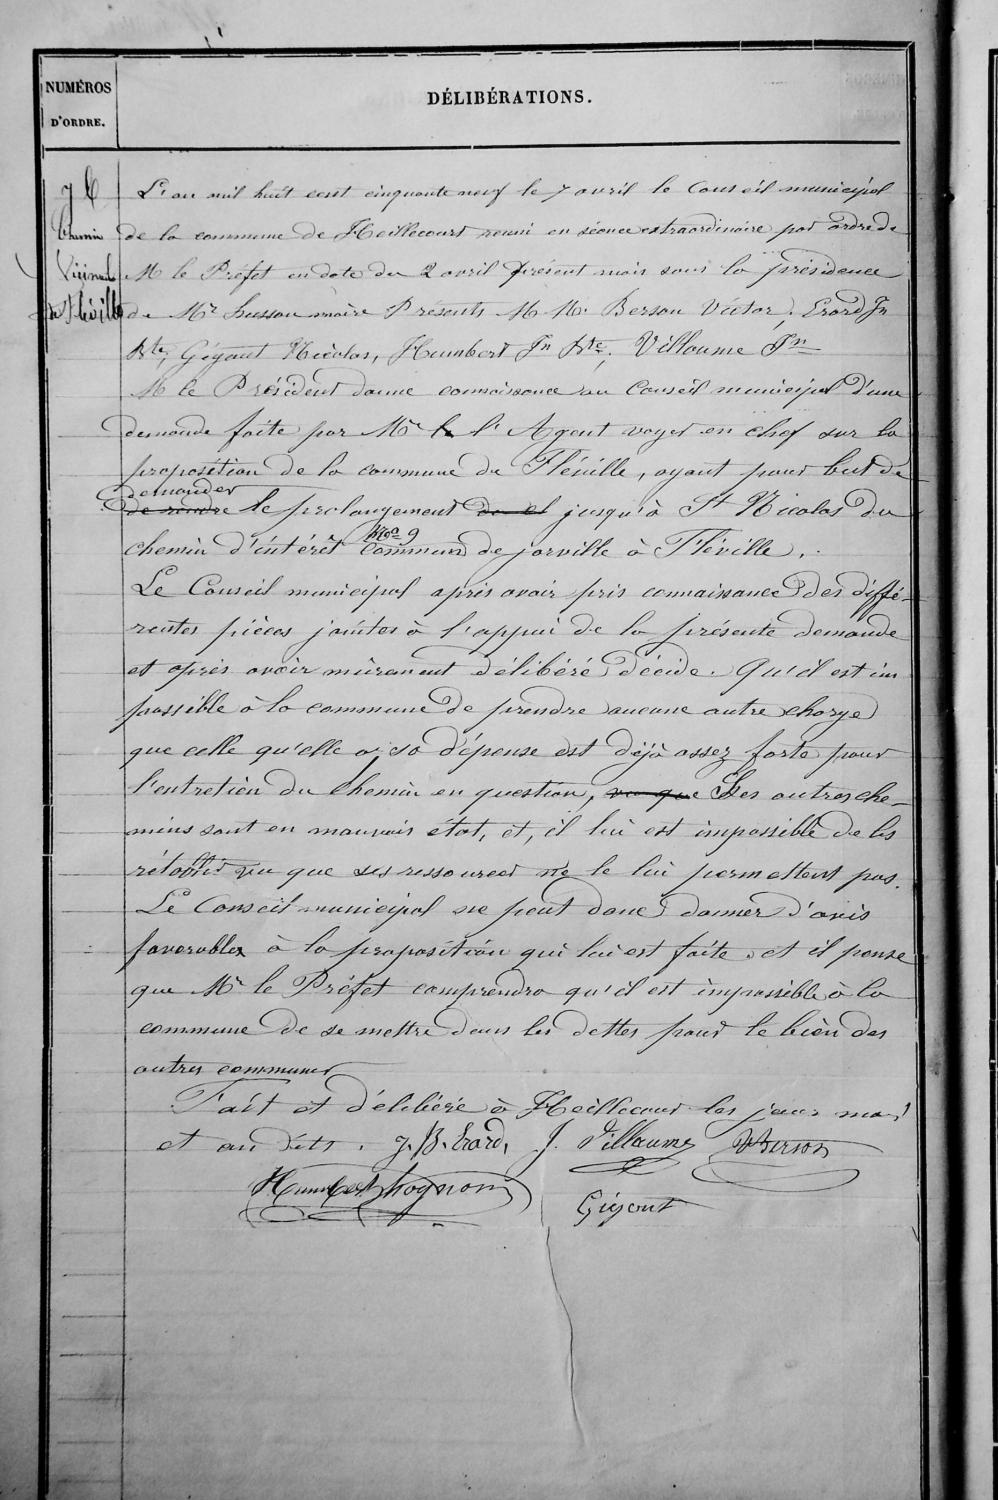 NUMÉROS
D'ORDRE.
DÉLIBÉRATIONS.
Chemin
Vicinal
de Fléville
L'an mil huit cent cinquante neuf le 7 avril le Conseil municipal
de la commune de Heillecourt reuni en séance extraordinaire par ordre de
M le Préfet en date du 2 avril présent mois sous la présidence
de Mr Husson maire Présents M M. Berson Victor, Erard Jn
Bte, Gégout Nicolas, Humbert Jn Bte, Villaume Jn
M le Président donne connaissance au Conseil municipal d'une
demande faite par Mr l'Agent voyer en chef sur la
proposition de la commune de Fléville, ayant pour but de
demander
de rendre le prolongement jusqu'à St Nicolas du
No 9
chemin d'intérêt commun de jarville à Fléville.
Le Conseil municipal après avoir pris connaissance des diffé-
rentes pièces jointes à l'appui de la présente demande
et après avoir mûrement délibéré décide. Qu'il est im
possible à la commune de prendre aucune autre charge
que celle qu'elle a, sa dépense est déjà assez forte pour
l'entretien du chemin en question, vu que Les autres che-
mins sont en mauvais état, et, il lui est impossible de les
rétablir vu que ses ressources ne le lui permettent pas.
Le Conseil municipal ne peut donc donner d'avis
favorable à la proposition qui lui est faite, et il pense
que Mr le Préfet comprendra qu'il est impossible à la
commune de se mettre dans les dettes pour le bien des
autres communes
Fait et délibéré à Heillecourt les jour mois
et an dits. J. B. Erard, J. Villaume VBerson
Humbert Gégout